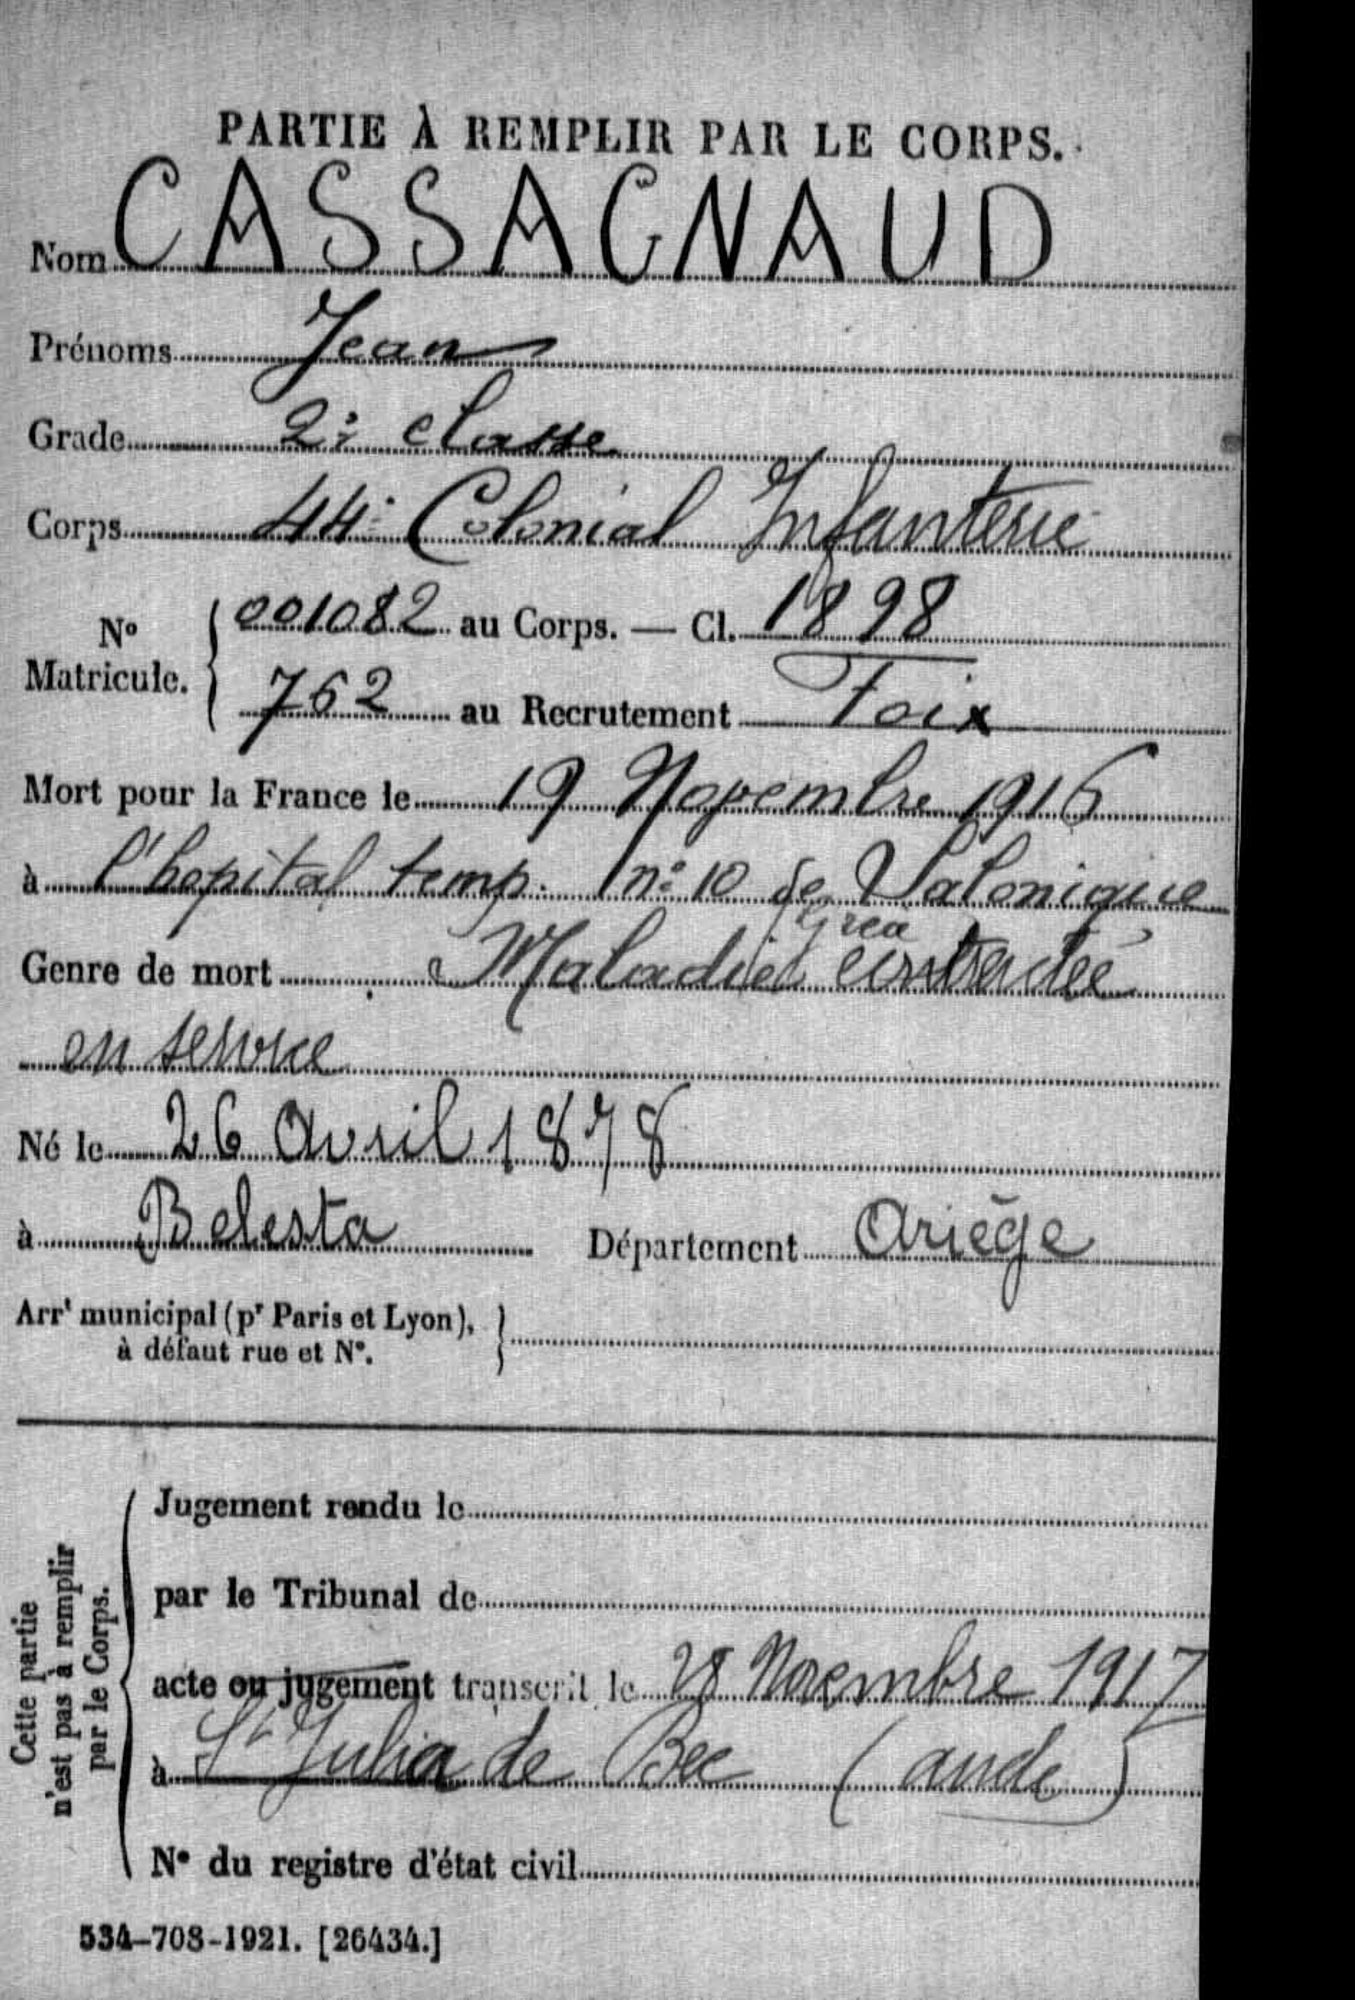 PARTIE À REMPLIR PAR LE CORPS.
Nom CASSAGNAUD
Prénoms Jean
Grade 2e classe
Corps 44e Colonial Infanterie
No Matricule. { 001082 au Corps. — Cl. 1898
762 au Recrutement Foix
Mort pour la France le 19 Novembre 1916
à l'hopital temp. no 10 de Salonique
Genre de mort Maladie contractée
en service
Né le 26 Avril 1878
à Belesta Département Ariège
Arrt municipal (pr Paris et Lyon),
à défaut rue et No.
Cette partie n'est pas à remplir par le Corps.
Jugement rendu le
par le Tribunal de
acte ou jugement transcrit le 28 Novembre 1917
à St Julia de Bec (aude)
No du registre d'état civil
534-708-1921. [26434.]